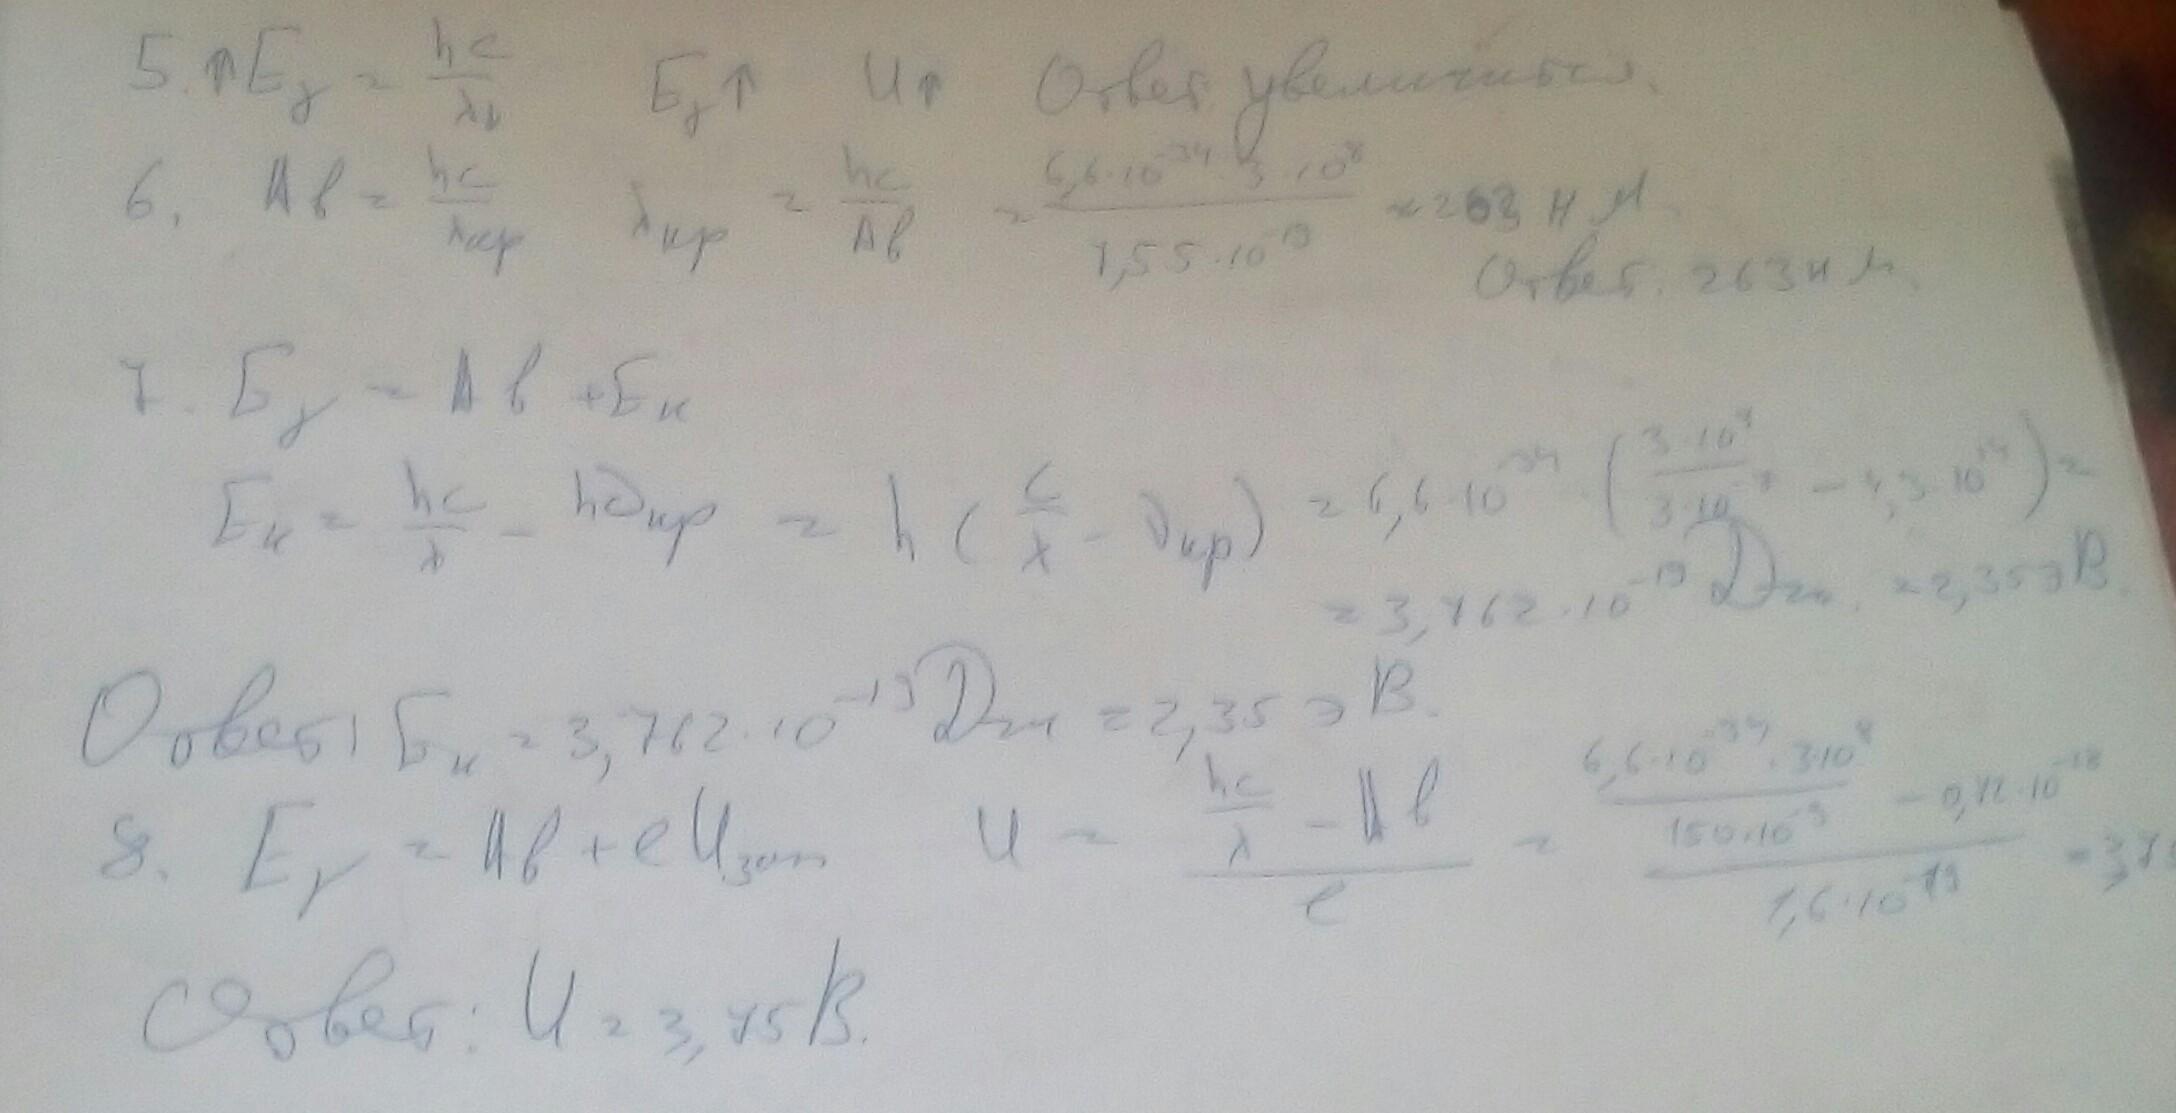 5. ↑Eγ = hc/λ↓ Eγ↑ U↑ Ответ увеличится.
6. Aв = hc/λкр λкр = hc/Aв = 6,6·10⁻³⁴·3·10⁸/7,55·10⁻¹⁹ = 263 нм
Ответ. 263 нм.
7. Eγ = Aв + Eк
Eк = hc/λ - hνкр = h(c/λ - νкр) = 6,6·10⁻³⁴·(3·10⁸/3·10⁻⁷ - 4,3·10¹⁴) =
= 3,762·10⁻¹⁹ Дж. = 2,35 эВ.
Ответ: Eк = 3,762·10⁻¹⁹ Дж = 2,35 эВ.
8. Eγ = Aв + eUзап U = (hc/λ - Aв)/e = (6,6·10⁻³⁴·3·10⁸/150·10⁻⁹ - 0,72·10⁻¹⁸)/1,6·10⁻¹⁹ = 3,75
Ответ: U = 3,75 В.